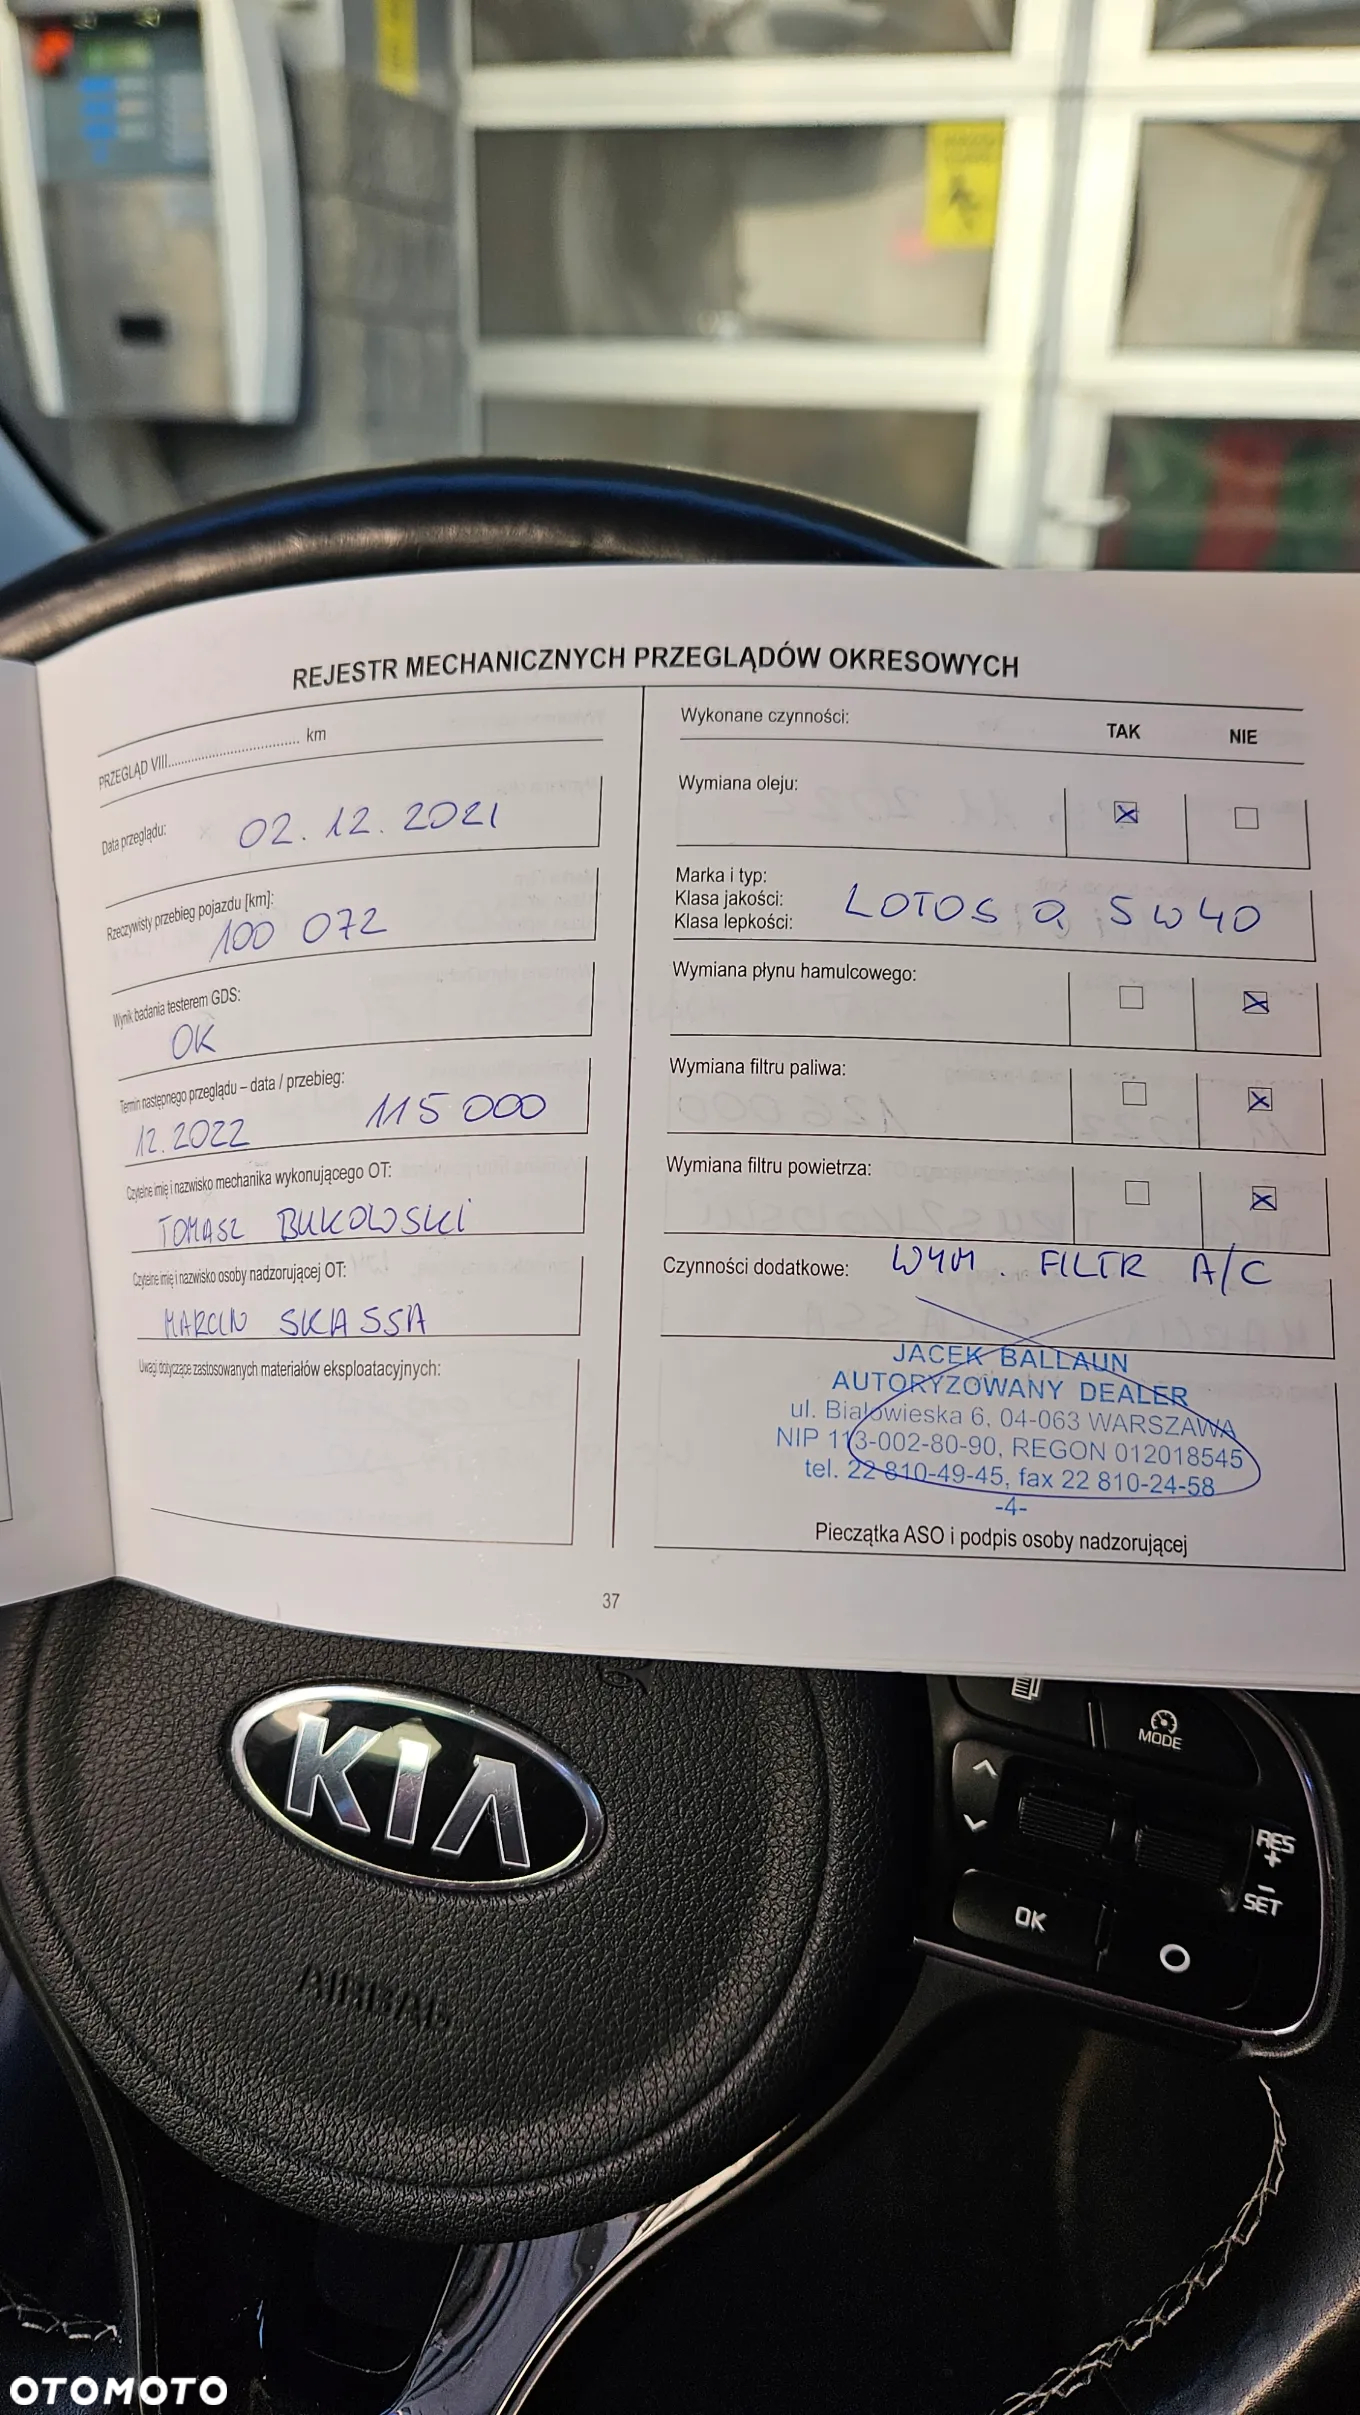 REJESTR MECHANICZNYCH PRZEGLĄDÓW OKRESOWYCH
PRZEGLĄD VIII.................................... km
Data przeglądu: 02.12.2021
Rzeczywisty przebieg pojazdu [km]:
100 072
Wynik badania testerem GDS:
OK
Termin następnego przeglądu – data / przebieg:
12.2022 115 000
Czytelne imię i nazwisko mechanika wykonującego OT:
TOMASZ BUKOWSKI
Czytelne imię i nazwisko osoby nadzorującej OT:
MARCIN SKASSA
Uwagi dotyczące zastosowanych materiałów eksploatacyjnych:
Wykonane czynności: TAK NIE
Wymiana oleju:
Marka i typ:
Klasa jakości:
Klasa lepkości:
LOTOS Q 5W40
Wymiana płynu hamulcowego:
Wymiana filtru paliwa:
Wymiana filtru powietrza:
Czynności dodatkowe: WYM. FILTR A/C
JACEK BALLAUN
AUTORYZOWANY DEALER
ul. Białowieska 6, 04-063 WARSZAWA
NIP 113-002-80-90, REGON 012018545
tel. 22 810-49-45, fax 22 810-24-58
-4-
Pieczątka ASO i podpis osoby nadzorującej
37
KIA
AIRBAG
MODE
RES
+
–
SET
OK
OTOMOTO